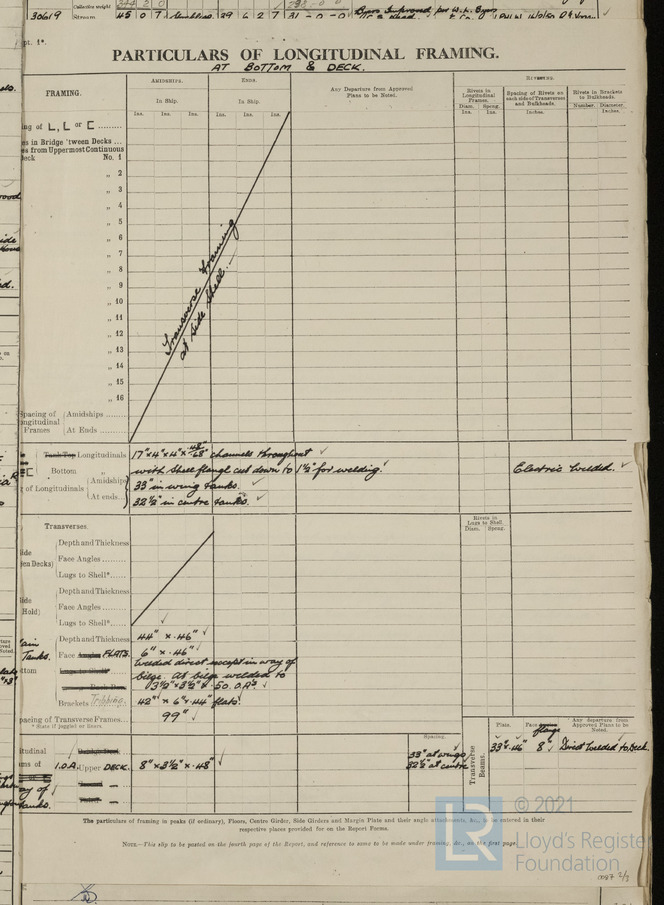 Collecting weight
30619 Stream 45 0 7 39 6 2 7 31 - 0 - 0
pt. 1*.
PARTICULARS OF LONGITUDINAL FRAMING.
AT BOTTOM & DECK.
FRAMING.
AMIDSHIPS.
ENDS.
Any Departure from Approved Plans to be Noted.
RIVETING.
In Ship.
In Ship.
Rivets in Longitudinal Frames.
Spacing of Rivets on each side of Transverses and Bulkheads.
Rivets in Brackets to Bulkheads.
Diam. Spcng.
Number. Diameter.
Ins. Ins. Ins. Ins. Ins. Ins.
Ins. Ins.
Inches.
Inches.
ng of L, L or C
s in Bridge 'tween Decks ...
es from Uppermost Continuous
Deck No. 1
„ 2
„ 3
„ 4
„ 5
„ 6
„ 7
„ 8
„ 9
„ 10
„ 11
„ 12
„ 13
„ 14
„ 15
„ 16
Transverse Framing
at side shell.
Spacing of Longitudinal Frames
Amidships
At Ends
Tank Top Longitudinals
17" x 4" x 4" x .48"/.68" channels throughout
Bottom „
with shell flange cut down to 1½" for welding.
Electric Welded.
g of Longitudinals
Amidships
33" in wing tanks.
At ends
32½" in centre tanks.
TRANSVERSES.
Rivets in Lugs to Shell.
Diam. Spcng.
ide
een Decks)
Depth and Thickness
Face Angles
Lugs to Shell*
ide
Hold)
Depth and Thickness
Face Angles
Lugs to Shell*
ain
Tanks.
ottom
Depth and Thickness 44" x .46"
Face Angles FLATS. 6" x .46"
Lugs to Shell* Welded direct except in way of
bilge. At bilge welded to
3½" x 3½" x .50 O.A's
Brackets Tripping. 42" x 6" x .44" flats.
pacing of Transverse Frames 99"
* State if joggled or liners.
Spacing.
Plate.
Face flange
Any departure from Approved Plans to be Noted.
tudinal
ms of
I.O.A. Upper DECK. 8" x 3½" x .48"
33" at wings
32½" at centre
Transverse Beams.
33" x .46" 8" Direct welded to Deck.
way of
tanks.
The particulars of framing in peaks (if ordinary), Floors, Centre Girder, Side Girders and Margin Plate and their angle attachments, &c., to be entered in their
respective places provided for on the Report Forms.
NOTE—This slip to be posted on the fourth page of the Report, and reference to same to be made under framing, &c., on the first page.
LR
© 2021
Lloyd's Register
Foundation
0087 2/3